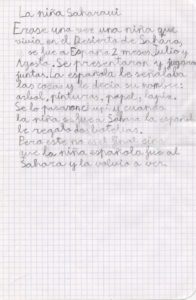 La niña Saharaui
Erase una vez una niña que
vivia en el Desierto de Sahara,
se fue a España 2 meses, Julio y
Agosto. Se presentaron y jugaron
juntas. La española le señalaba
las cosas y le decia su nombre:
arbol, pinturas, papel, lapiz.
Se lo pasaron chupi y cuando
la niña se fue a Sahara la español
le regalo dos
Pero este no es el final sino
que la niña española fue al
Sahara y la volvio a ver.